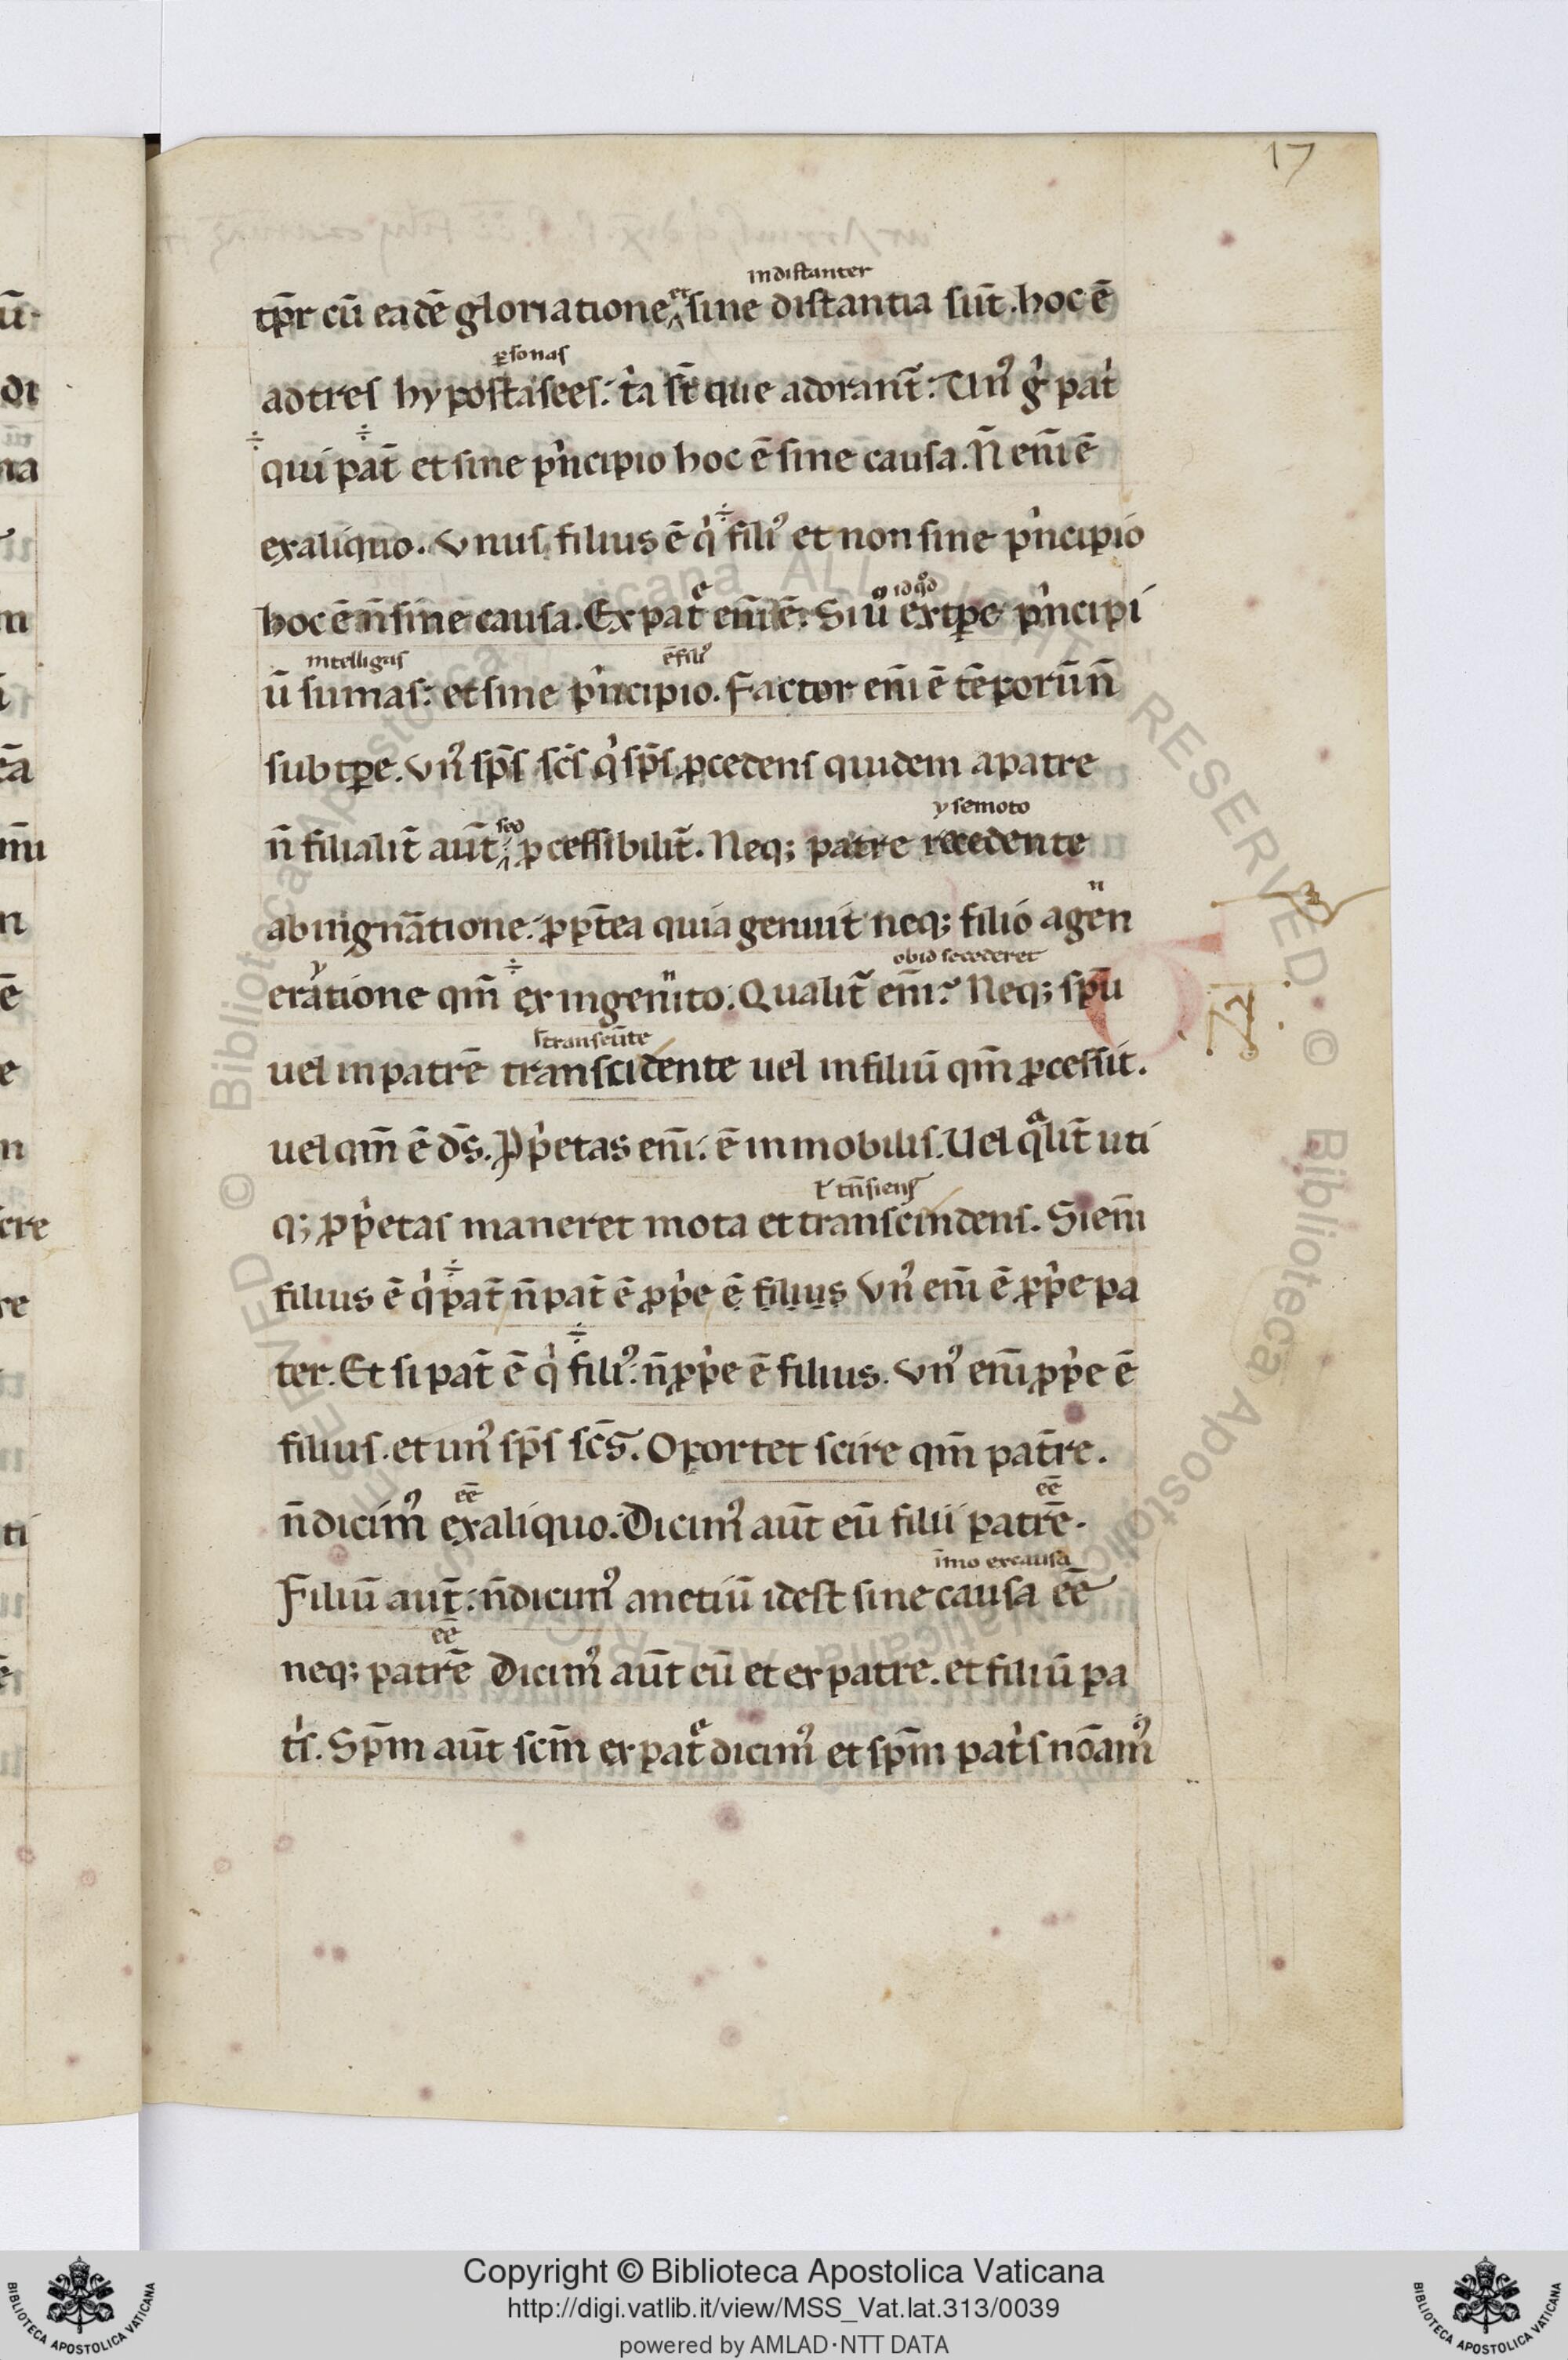 17
indistanter
tp̄r cū eadē gloriatione et sine distantia sūt. hoc ē
ꝑsonas
ad tres hypostasees. t͛a st̄ que adorant̄. Un᾽ g͛ pat͛
÷ ÷
qui pat̄ et sine p͛ncipio hoc ē sine causa. N̄ eni̅ ē
÷
ex aliquo. Unus filius ē q͛ fili᾽ et non sine p͛ncipio
id qd̊
hoc ē n̄ sine causa. Ex patͤ eni̅ ē. Si ů ex tꝑe p͛ncipi
intelligas ē fili᾽
ū sumas. et sine p͛ncipio. Factor eni̅ ē tēporū n̄
sub tꝑe. Un᾽ sp̄s sc̄s q͛ sp̄s ꝓcedens quidem a patre
sed ỿ semoto
n̄ filialit̄ aūt ꝓcessibilit̄. Neq; patre recedente
n
ab ingnātione. ꝓpt̄ea quia genuit neq; filio a gen
÷ n ob id secederet
erátione qm̄ ex ingenito. Qualit̄ eni̅. Neq; spu̅
transeūte
uel in patrē transcidente uel in filiū qm̄ ꝓcessit.
uel qm̄ ē ds̄. Ꝓp͛etas eni̅. ē inmobilis. Uel qͣlit̄ uti
ł tn̄siens
q; ꝓp͛etas maneret mota et transcindens. Si eni̅
÷
filius ē q͛ pat̄ n̄ pat̄ ē ꝓp͛e ē filius Un᾽ eni̅ ē ꝓp͛e pa
÷
ter. Et si pat̄ ē q͛ fili᾽. n̄ ꝓp͛e ē filius. Un᾽ eni̅ ꝓp͛e ē
filius. et un᾽ sp̄s sc̄s. Oportet scire qm̄ patr̄e.
eē eē
n̄ dicim᾽ ex aliquo. Dicim᾽ aūt eū filii patrē.
im̄o ex causa
Filiū aūt. n̄ dicim᾽ anetiū idest sine causa eē
eē
neq; patrē Dicim᾽ aūt eū et ex patre. et filiū pa
t͛s. Sp̄m aūt scm̄ ex patͤ dicim᾽ et sp̄m pat͛s nōam᾽
ū.
di
na
m
cā
n
ē
e
n
cre
re
ti
Copyright © Biblioteca Apostolica Vaticana
http://digi.vatlib.it/view/MSS_Vat.lat.313/0039
powered by AMLAD·NTT DATA
BIBLIOTECA APOSTOLICA VATICANA
BIBLIOTECA APOSTOLICA VATICANA